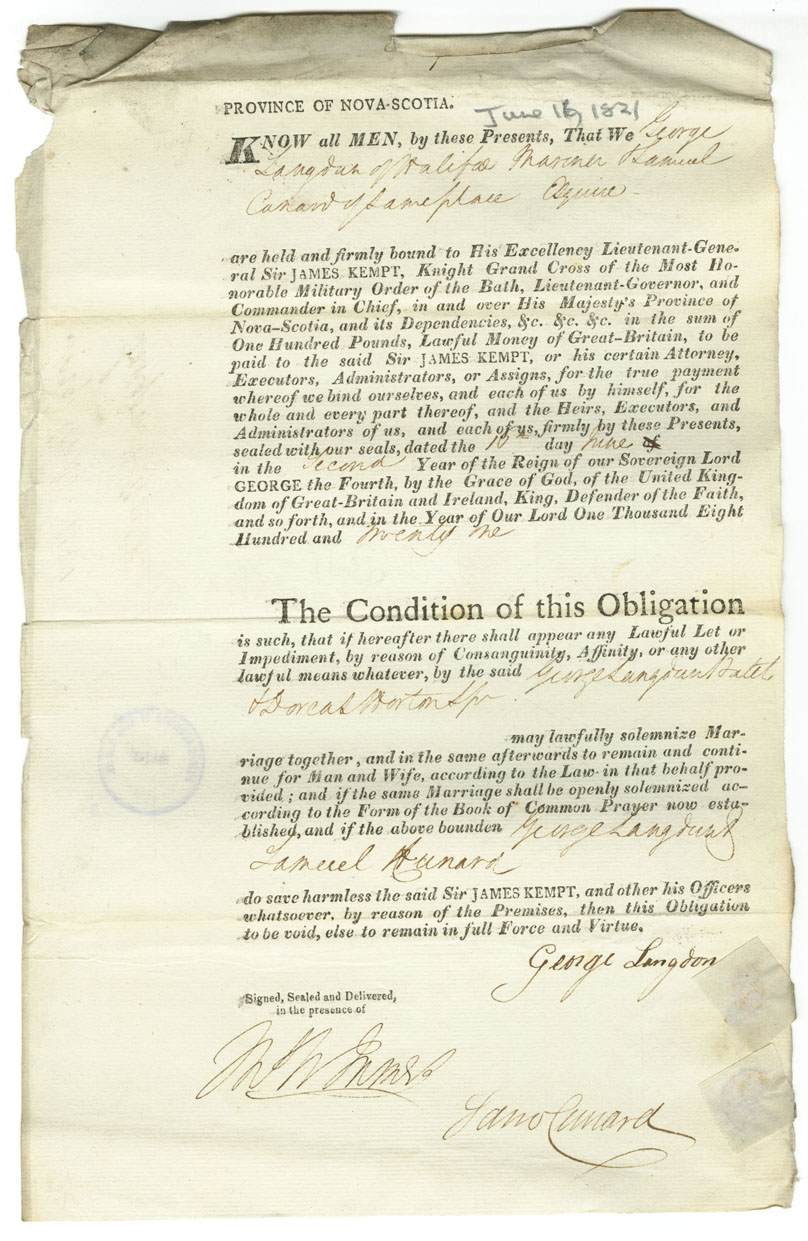 PROVINCE OF NOVA-SCOTIA.
June 16, 1821
KNOW all MEN, by these Presents, That We George
Langdon of Halifax Mariner & Samuel
Cunard of same place Esquire
are held and firmly bound to His Excellency Lieutenant-Gene-
ral Sir JAMES KEMPT, Knight Grand Cross of the Most Ho-
norable Military Order of the Bath, Lieutenant-Governor, and
Commander in Chief, in and over His Majesty's Province of
Nova-Scotia, and its Dependencies, &c. &c. &c. in the sum of
One Hundred Pounds, Lawful Money of Great-Britain, to be
paid to the said Sir JAMES KEMPT, or his certain Attorney,
Executors, Administrators, or Assigns, for the true payment
whereof we bind ourselves, and each of us by himself, for the
whole and every part thereof, and the Heirs, Executors, and
Administrators of us, and each of us, firmly by these Presents,
sealed with our seals, dated the day June of
in the Second Year of the Reign of our Sovereign Lord
GEORGE the Fourth, by the Grace of God, of the United King-
dom of Great-Britain and Ireland, King, Defender of the Faith,
and so forth, and in the Year of Our Lord One Thousand Eight
Hundred and twenty one
The Condition of this Obligation
is such, that if hereafter there shall appear any Lawful Let or
Impediment, by reason of Consanguinity, Affinity, or any other
lawful means whatever, by the said George Langdon Batch
& Dorcas Horton Spr
may lawfully solemnize Mar-
riage together, and in the same afterwards to remain and conti-
nue for Man and Wife, according to the Law in that behalf pro-
vided; and if the same Marriage shall be openly solemnized ac-
cording to the Form of the Book of Common Prayer now esta-
blished, and if the above bounden George Langdon &
Samuel Cunard
do save harmless the said Sir JAMES KEMPT, and other his Officers
whatsoever, by reason of the Premises, then this Obligation
to be void, else to remain in full Force and Virtue.
George Langdon
Signed, Sealed and Delivered,
in the presence of
Saml Cunard